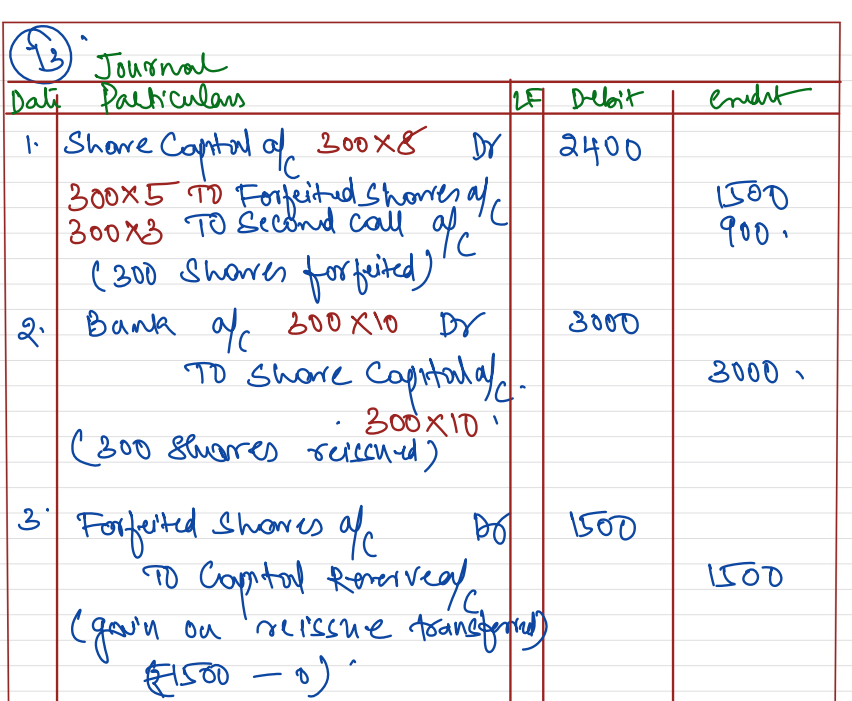 13
Journal
Date Particulars LF Debit Credit
1. Share Capital a/c 300×8 Dr 2400
300×5 TO Forfeited Shares a/c 1500
300×3 TO Second Call a/c 900
(300 Shares forfeited)
2. Bank a/c 300×10 Dr 3000
TO Share Capital a/c. 3000
300×10
(300 Shares reissued)
3. Forfeited Shares a/c Dr 1500
TO Capital Reserve a/c 1500
(gain on reissue transferred)
(₹1500 – 0)